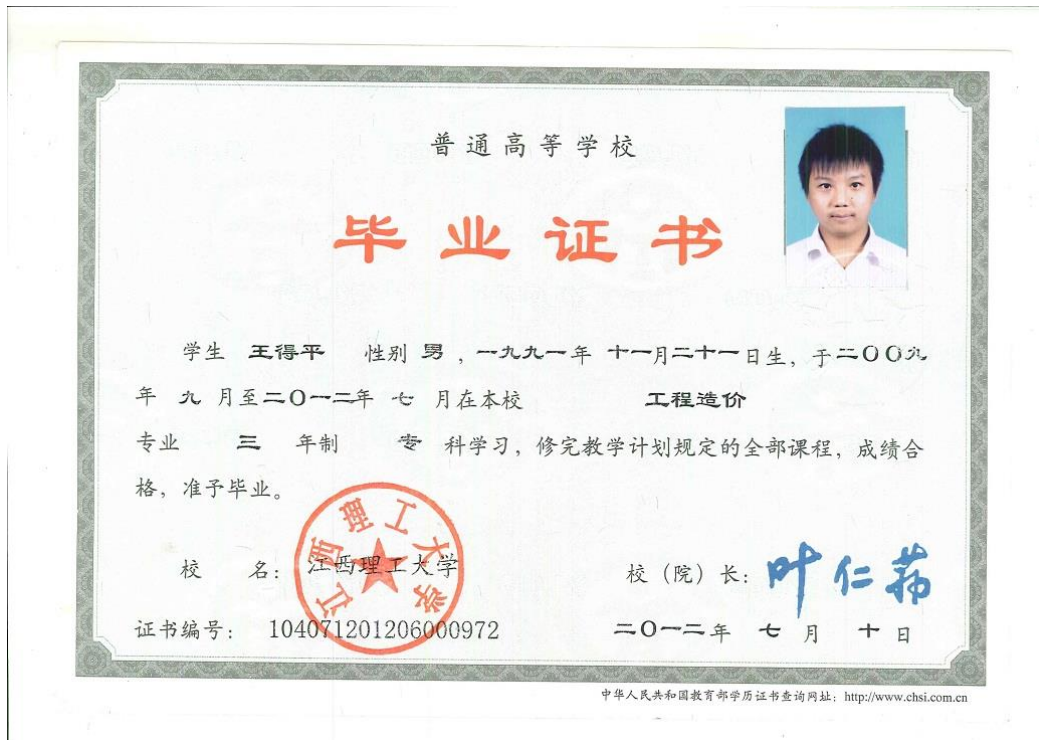 普通高等学校
毕业证书
学生 王得平 性别 男，一九九一年 十一月二十一日生，于二〇〇九
年 九 月至二〇一二年 七 月在本校 工程造价
专业 三 年制 专 科学习，修完教学计划规定的全部课程，成绩合
格，准予毕业。
江西理工大学
校 名：江西理工大学 校（院）长：叶仁荪
证书编号：104071201206000972 二〇一二年 七 月 十 日
中华人民共和国教育部学历证书查询网址：http://www.chsi.com.cn